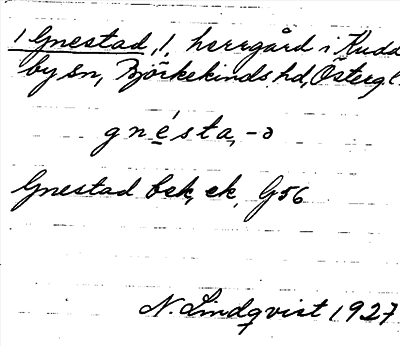 1 Gnestad, 1, herrgård i Kudd
by sn, Björkekinds hd, Östergl.
gnésta, -ə
Gnestad bsk, ek, G56
N. Lindqvist 1927